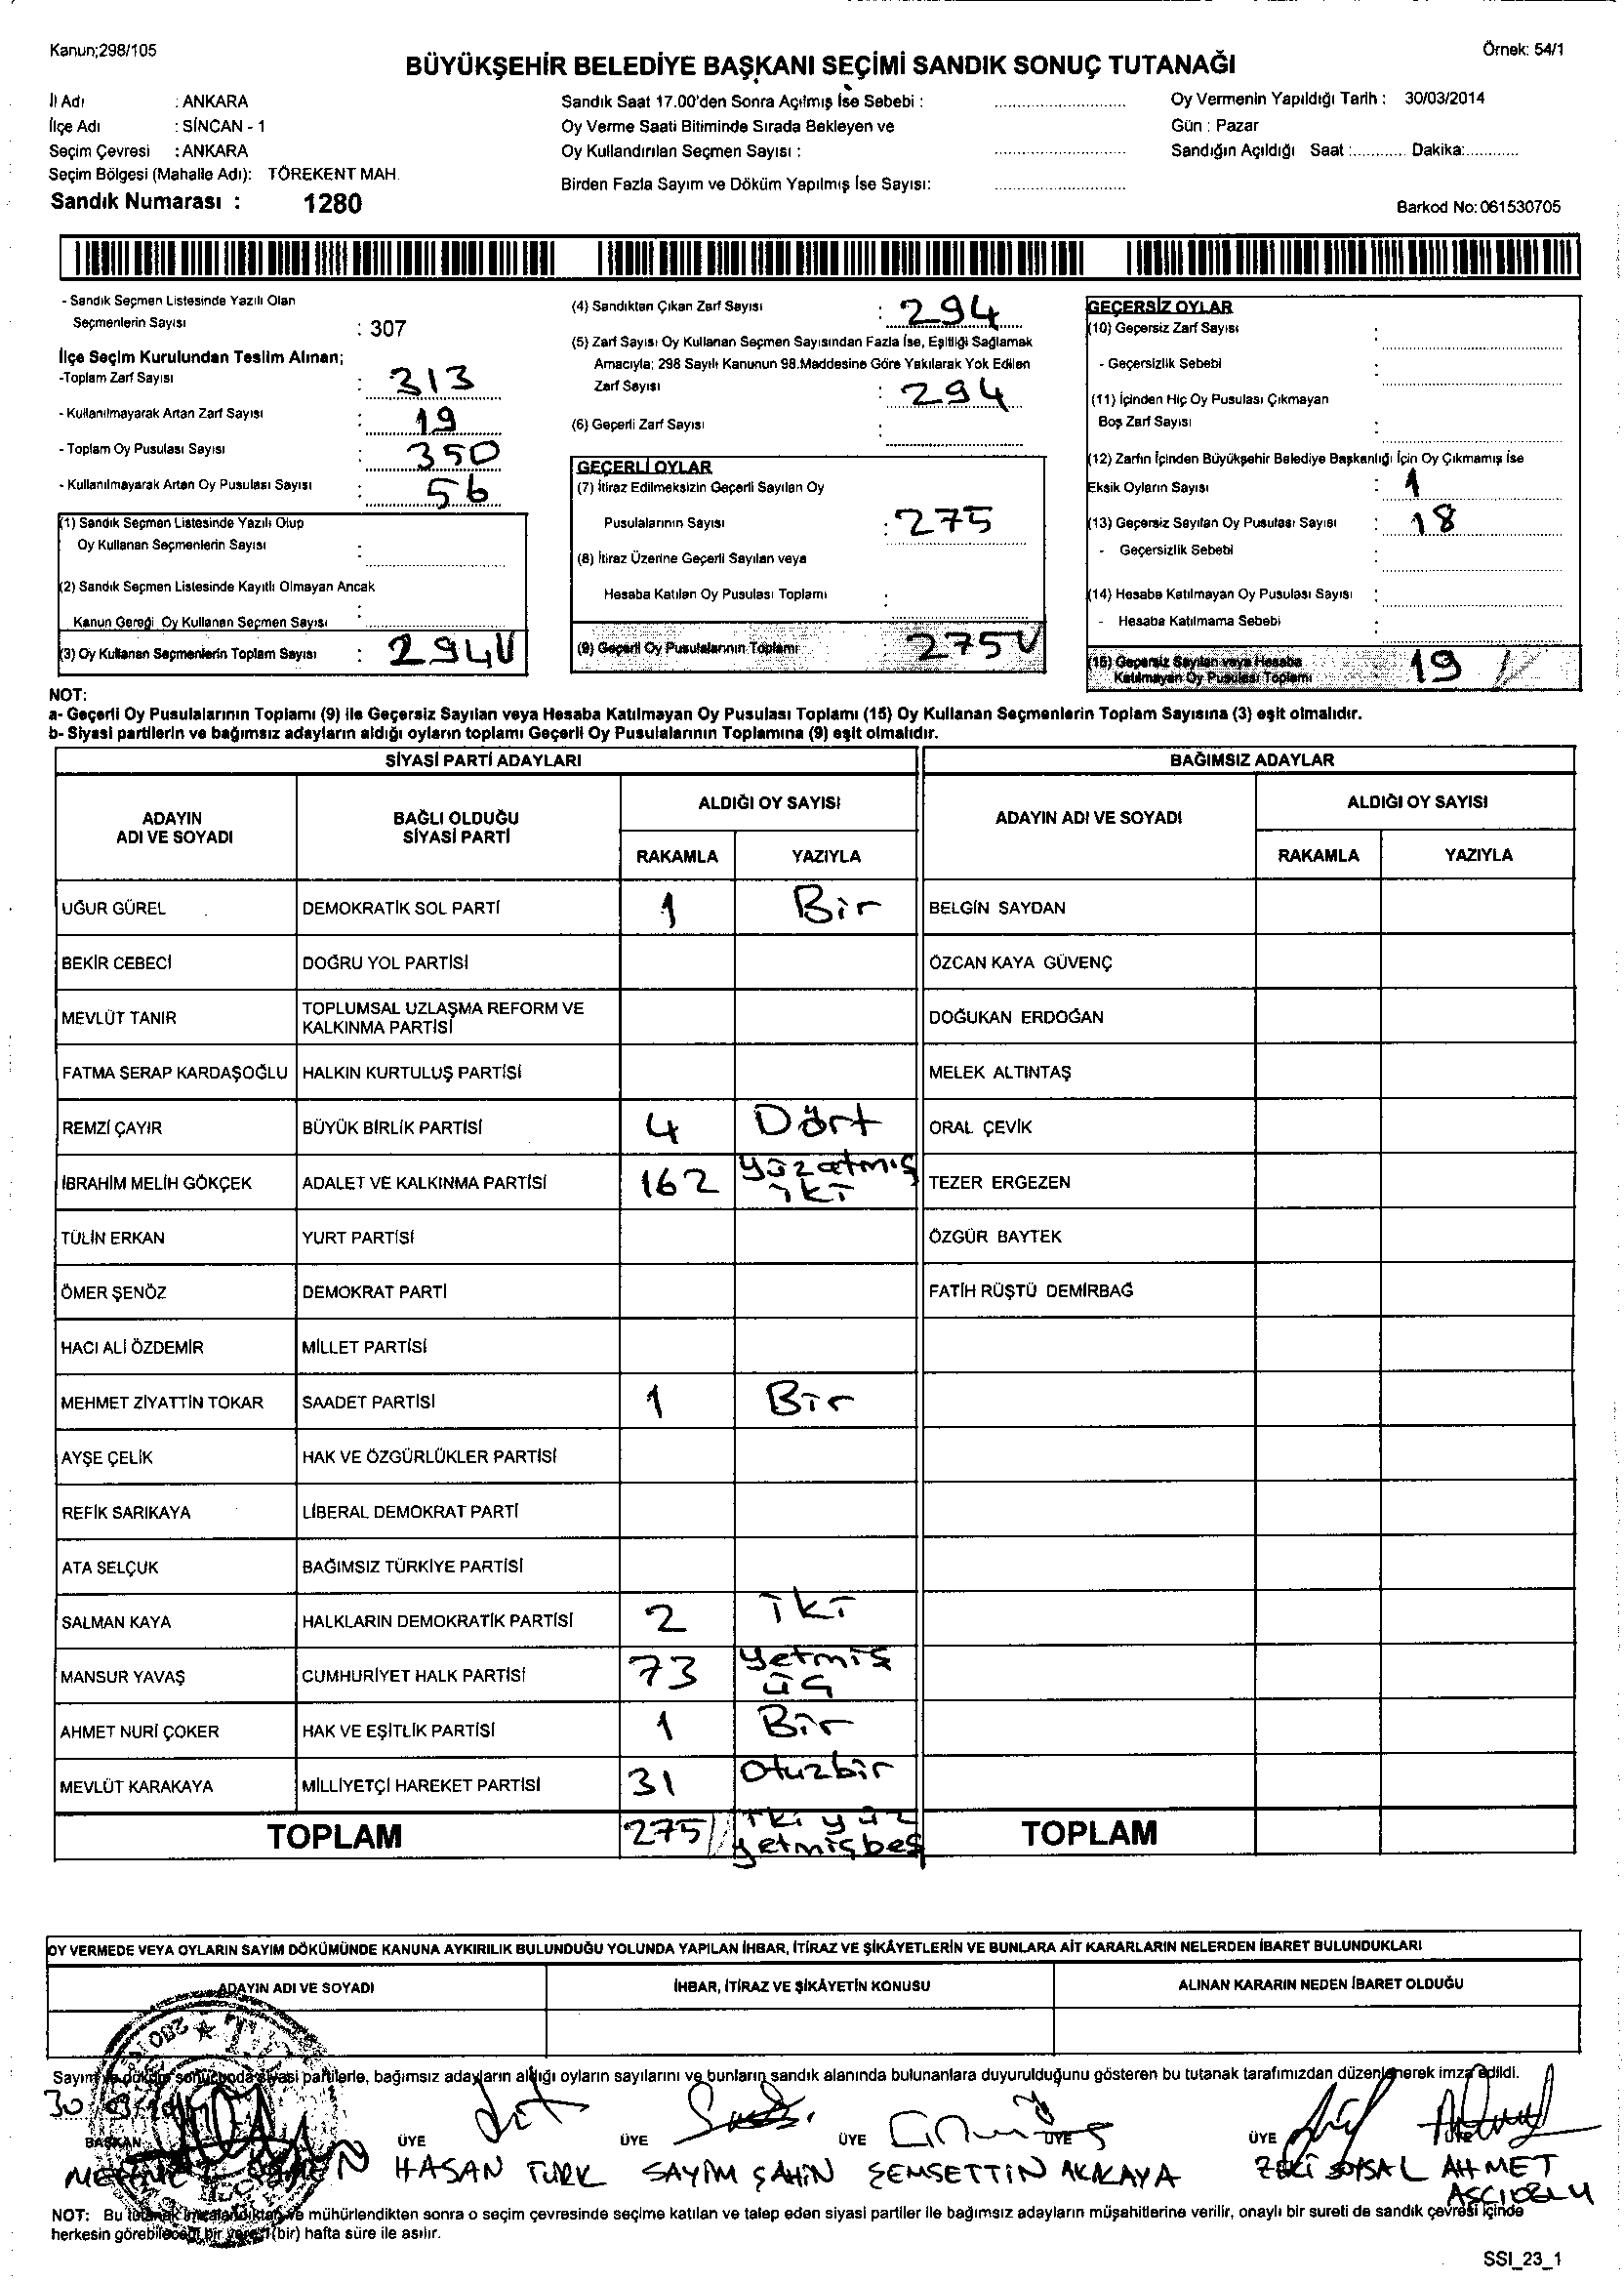 Kanun;298/105
Örnek: 54/1
BÜYÜKŞEHİR BELEDİYE BAŞKANI SEÇİMİ SANDIK SONUÇ TUTANAĞI
İl Adı : ANKARA
İlçe Adı : SİNCAN - 1
Seçim Çevresi : ANKARA
Seçim Bölgesi (Mahalle Adı): TÖREKENT MAH.
Sandık Numarası : 1280
Sandık Saat 17.00'den Sonra Açılmış İse Sebebi :
Oy Verme Saati Bitiminde Sırada Bekleyen ve
Oy Kullandırılan Seçmen Sayısı :
Birden Fazla Sayım ve Döküm Yapılmış İse Sayısı:
Oy Vermenin Yapıldığı Tarih : 30/03/2014
Gün : Pazar
Sandığın Açıldığı Saat :........... Dakika:...........
Barkod No:061530705
- Sandık Seçmen Listesinde Yazılı Olan
Seçmenlerin Sayısı : 307
İlçe Seçim Kurulundan Teslim Alınan;
-Toplam Zarf Sayısı : 313
- Kullanılmayarak Artan Zarf Sayısı : 19
- Toplam Oy Pusulası Sayısı : 350
- Kullanılmayarak Artan Oy Pusulası Sayısı : 56
(1) Sandık Seçmen Listesinde Yazılı Olup
Oy Kullanan Seçmenlerin Sayısı :
(2) Sandık Seçmen Listesinde Kayıtlı Olmayan Ancak
Kanun Gereği Oy Kullanan Seçmen Sayısı :
(3) Oy Kullanan Seçmenlerin Toplam Sayısı : 294
(4) Sandıktan Çıkan Zarf Sayısı : 294
(5) Zarf Sayısı Oy Kullanan Seçmen Sayısından Fazla İse, Eşitliği Sağlamak
Amacıyla; 298 Sayılı Kanunun 98.Maddesine Göre Yakılarak Yok Edilen
Zarf Sayısı : 294
(6) Geçerli Zarf Sayısı :
GEÇERLİ OYLAR
(7) İtiraz Edilmeksizin Geçerli Sayılan Oy
Pusulalarının Sayısı : 275
(8) İtiraz Üzerine Geçerli Sayılan veya
Hesaba Katılan Oy Pusulası Toplamı :
(9) Geçerli Oy Pusulalarının Toplamı : 275
GEÇERSİZ OYLAR
(10) Geçersiz Zarf Sayısı :
- Geçersizlik Sebebi :
(11) İçinden Hiç Oy Pusulası Çıkmayan
Boş Zarf Sayısı :
(12) Zarfın İçinden Büyükşehir Belediye Başkanlığı İçin Oy Çıkmamış İse
Eksik Oyların Sayısı : 1
(13) Geçersiz Sayılan Oy Pusulası Sayısı : 18
- Geçersizlik Sebebi :
(14) Hesaba Katılmayan Oy Pusulası Sayısı :
- Hesaba Katılmama Sebebi :
(15) Geçersiz Sayılan veya Hesaba
Katılmayan Oy Pusulası Toplamı 19
NOT:
a- Geçerli Oy Pusulalarının Toplamı (9) ile Geçersiz Sayılan veya Hesaba Katılmayan Oy Pusulası Toplamı (15) Oy Kullanan Seçmenlerin Toplam Sayısına (3) eşit olmalıdır.
b- Siyasi partilerin ve bağımsız adayların aldığı oyların toplamı Geçerli Oy Pusulalarının Toplamına (9) eşit olmalıdır.
SİYASİ PARTİ ADAYLARI BAĞIMSIZ ADAYLAR
ADAYIN
ADI VE SOYADI
BAĞLI OLDUĞU
SİYASİ PARTİ
ALDIĞI OY SAYISI
RAKAMLA YAZIYLA
ADAYIN ADI VE SOYADI
ALDIĞI OY SAYISI
RAKAMLA YAZIYLA
UĞUR GÜREL DEMOKRATİK SOL PARTİ 1 Bir BELGİN SAYDAN
BEKİR CEBECİ DOĞRU YOL PARTİSİ ÖZCAN KAYA GÜVENÇ
MEVLÜT TANIR TOPLUMSAL UZLAŞMA REFORM VE
KALKINMA PARTİSİ DOĞUKAN ERDOĞAN
FATMA SERAP KARDAŞOĞLU HALKIN KURTULUŞ PARTİSİ MELEK ALTINTAŞ
REMZİ ÇAYIR BÜYÜK BİRLİK PARTİSİ 4 Dört ORAL ÇEVİK
İBRAHİM MELİH GÖKÇEK ADALET VE KALKINMA PARTİSİ 162 yüzatmış
iki TEZER ERGEZEN
TÜLİN ERKAN YURT PARTİSİ ÖZGÜR BAYTEK
ÖMER ŞENÖZ DEMOKRAT PARTİ FATİH RÜŞTÜ DEMİRBAĞ
HACI ALİ ÖZDEMİR MİLLET PARTİSİ
MEHMET ZİYATTİN TOKAR SAADET PARTİSİ 1 Bir
AYŞE ÇELİK HAK VE ÖZGÜRLÜKLER PARTİSİ
REFİK SARIKAYA LİBERAL DEMOKRAT PARTİ
ATA SELÇUK BAĞIMSIZ TÜRKİYE PARTİSİ
SALMAN KAYA HALKLARIN DEMOKRATİK PARTİSİ 2 iki
MANSUR YAVAŞ CUMHURİYET HALK PARTİSİ 73 Yetmiş
üç
AHMET NURİ ÇOKER HAK VE EŞİTLİK PARTİSİ 1 Bir
MEVLÜT KARAKAYA MİLLİYETÇİ HAREKET PARTİSİ 31 Otuzbir
TOPLAM 275 iki yüz
yetmişbeş TOPLAM
OY VERMEDE VEYA OYLARIN SAYIM DÖKÜMÜNDE KANUNA AYKIRILIK BULUNDUĞU YOLUNDA YAPILAN İHBAR, İTİRAZ VE ŞİKÂYETLERİN VE BUNLARA AİT KARARLARIN NELERDEN İBARET BULUNDUKLARI
ADAYIN ADI VE SOYADI İHBAR, İTİRAZ VE ŞİKÂYETİN KONUSU ALINAN KARARIN NEDEN İBARET OLDUĞU
Sayım ve döküm sonucunda siyasi partilerle, bağımsız adayların aldığı oyların sayılarını ve bunların sandık alanında bulunanlara duyurulduğunu gösteren bu tutanak tarafımızdan düzenlenerek imza edildi.
30
BAŞKAN ÜYE ÜYE ÜYE ÜYE ÜYE ÜYE
HASAN TÜRK SAYİM ŞAHİN ŞEMSETTİN AKKAYA ZEKİ SOYSAL AHMET
AŞCIOĞLU
NOT: Bu tutanak imzalandıktan ve mühürlendikten sonra o seçim çevresinde seçime katılan ve talep eden siyasi partiler ile bağımsız adayların müşahitlerine verilir, onaylı bir sureti de sandık çevresi içinde
herkesin görebileceği bir yere 1 (bir) hafta süre ile asılır.
SSI_23_1